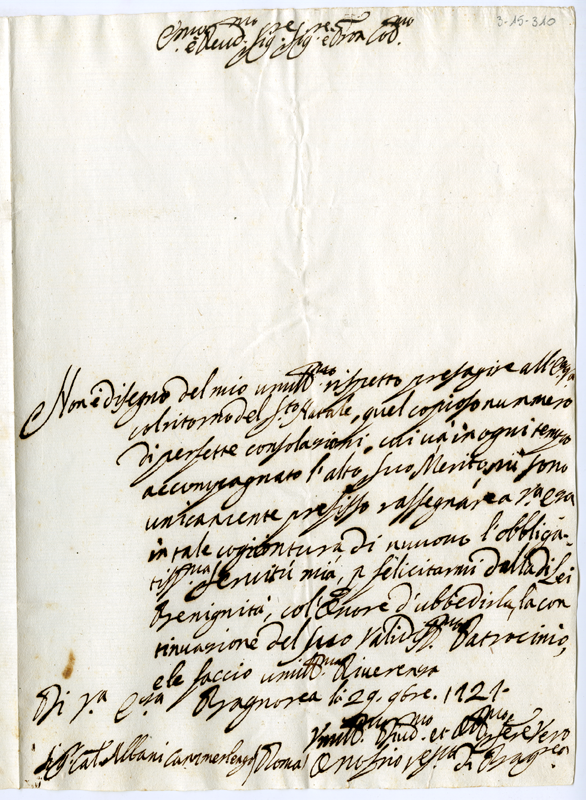 3-15-310
Em.mo e Reud. Sig.re Sig.re e Pron Col.mo
Non è disegno del mio umill.mo rispetto presagire all'
col ritorno del S.to Natale, quel copioso nummero
di perfette consolazioni, cui và in ogni tempo
accompagnato l'alto suo Merito, mi sono
unicamente prefisso rassegnare a V.a Em.za
in tale cogiontura di nuouo l'obbliga-
tiss.ma seruitù mia, p felicitarmi dalla di Lei
Benignità, col'Onore d'ubbedirla, la con
tinuazione del suo validiss.mo Patrocinio,
e le faccio umill.ma Riuerenza
Di V.a Em.za Bagnorea li 29. 9bre. 1721.
Umill.mo Diuo.mo et Obb.mo Ser.e Vero
Sig. Card. Albani Camerlengo (Roma) Onofrio Vesc.o di Bagnorea